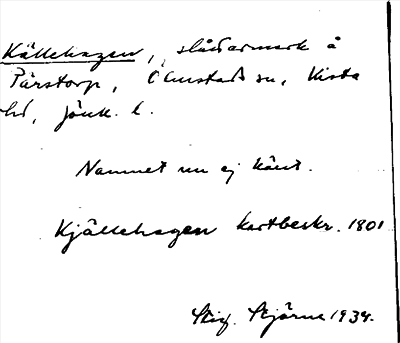 Källehagen, slåttermark å
Pärstorp, Ölmstads sn, Vista
hd, Jönk. l.
Namnet nu ej känt.
Kjällehagen kartbeskr. 1801
Stig. Stjärne 1934.